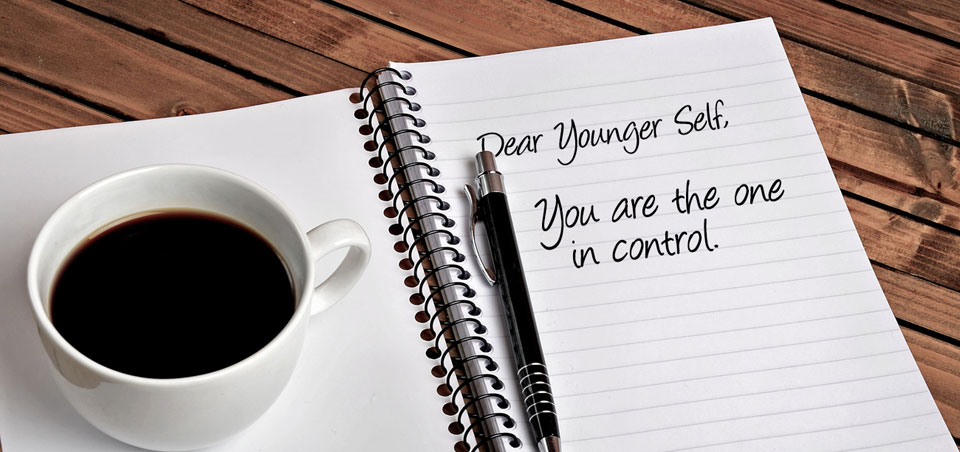 Dear Younger Self,
You are the one
in control.